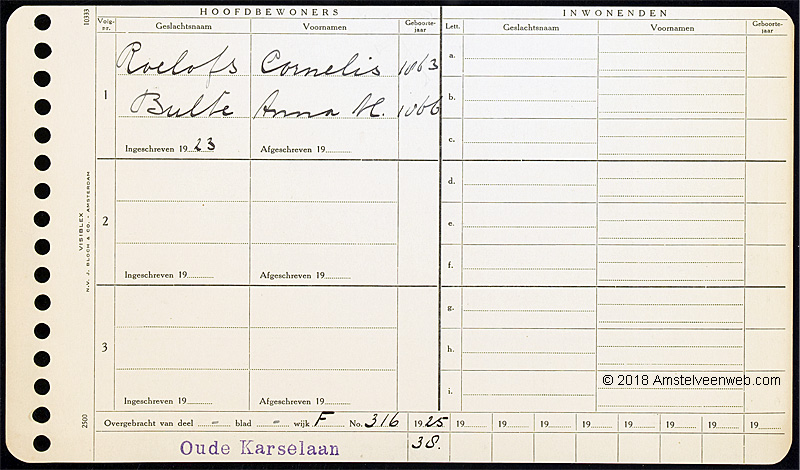 HOOFDBEWONERS
Volg-nr. Geslachtsnaam Voornamen Geboorte-jaar
1
Roelofs Cornelis 1863
Bulte Anna M. 1866
Ingeschreven 1923 Afgeschreven 19
2
Ingeschreven 19 Afgeschreven 19
3
Ingeschreven 19 Afgeschreven 19
INWONENDEN
Lett. Geslachtsnaam Voornamen Geboorte-jaar
a.
b.
c.
d.
e.
f.
g.
h.
i.
© 2018 Amstelveenweb.com
Overgebracht van deel - blad - wijk F No. 316 1925 19 19 19 19 19 19 19 19
Oude Karselaan 38.
10333
VISIBLEX
N.V. J. BLOCH & CO. - AMSTERDAM
2500